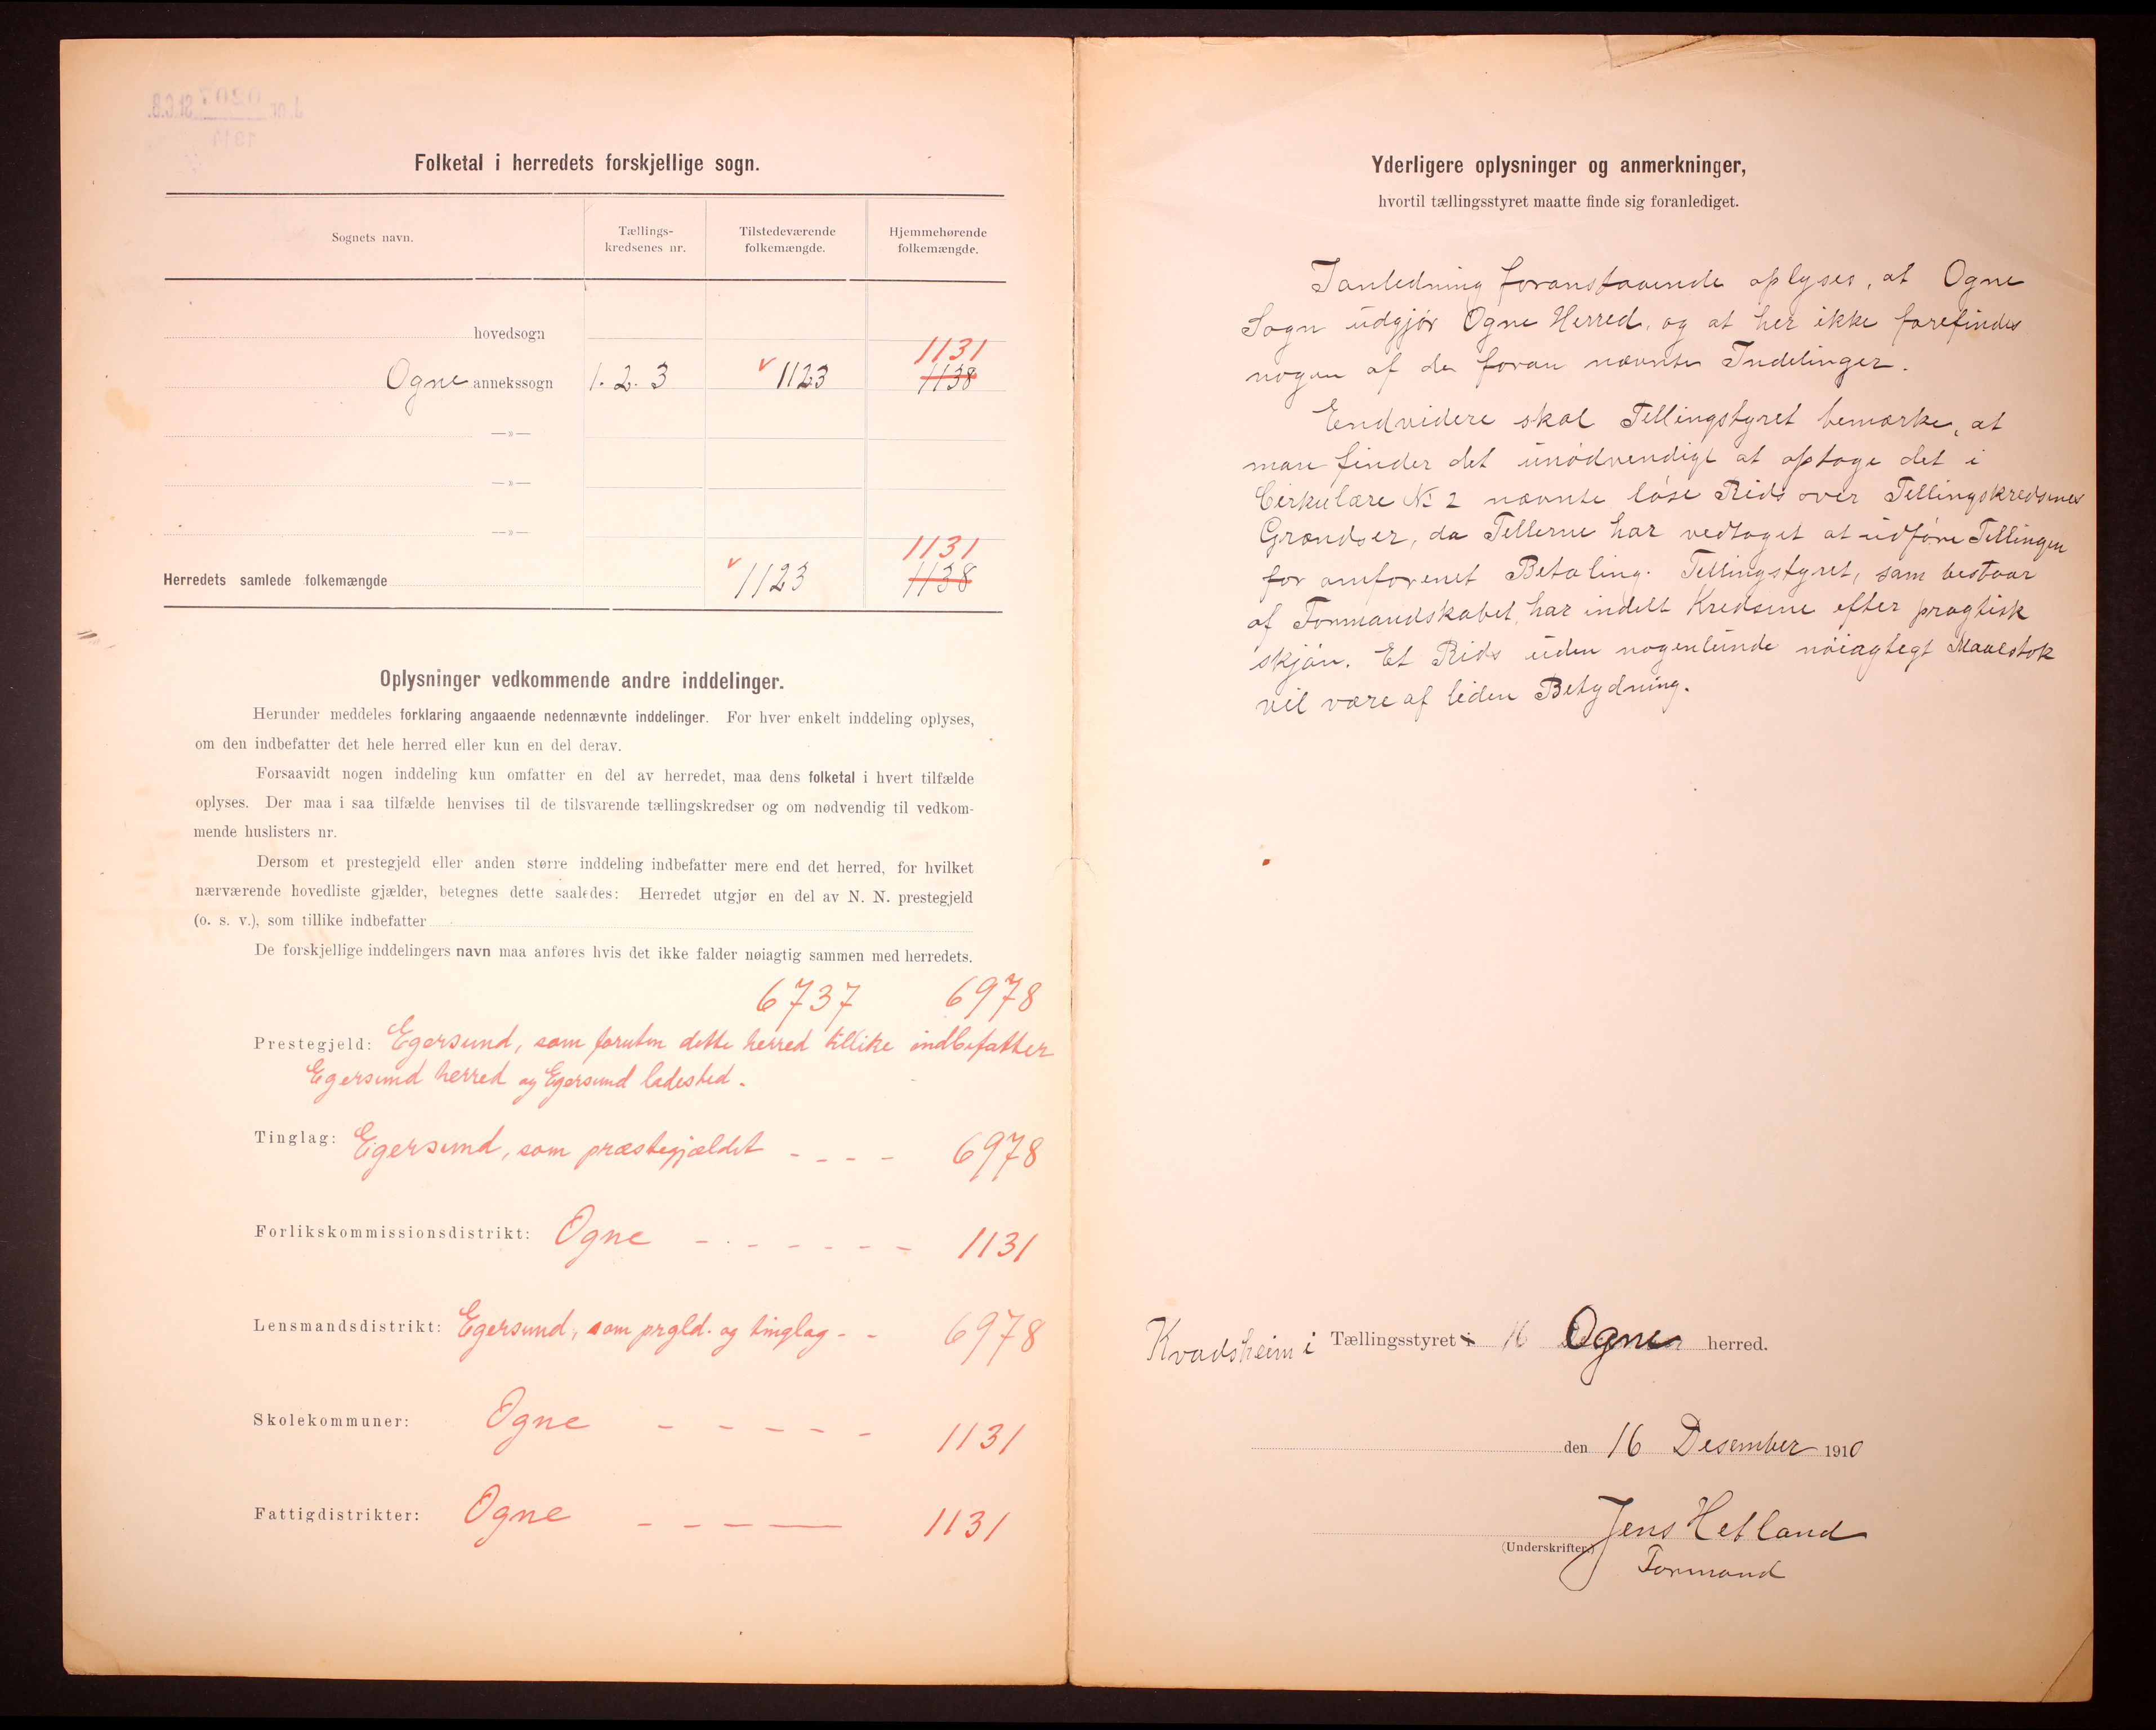 J. nr. 0207 St.C.B.
1911
Folketal i herredets forskjellige sogn.
Sognets navn. Tællings-kredsenes nr. Tilstedeværende folkemængde. Hjemmehørende folkemængde.
hovedsogn
1131
Ogne annekssogn 1. 2. 3 1123 1138
—»—
—»—
—»—
1131
Herredets samlede folkemængde 1123 1138
Oplysninger vedkommende andre inddelinger.
Herunder meddeles forklaring angaaende nedennævnte inddelinger. For hver enkelt inddeling oplyses,
om den indbefatter det hele herred eller kun en del derav.
Forsaavidt nogen inddeling kun omfatter en del av herredet, maa dens folketal i hvert tilfælde
oplyses. Der maa i saa tilfælde henvises til de tilsvarende tællingskredser og om nødvendig til vedkom-
mende huslisters nr.
Dersom et prestegjeld eller anden større inddeling indbefatter mere end det herred, for hvilket
nærværende hovedliste gjælder, betegnes dette saaledes: Herredet utgjør en del av N. N. prestegjeld
(o. s. v.), som tillike indbefatter
De forskjellige inddelingers navn maa anføres hvis det ikke falder nøiagtig sammen med herredets.
6737 6978
Prestegjeld: Egersund, som foruten dette herred tillike indbefatter
Egersund herred og Egersund ladested.
Tinglag: Egersund, som præstegjældet - - - - 6978
Forlikskommissionsdistrikt: Ogne - - - - - - - 1131
Lensmandsdistrikt: Egersund, som prgld. og tinglag - - 6978
Skolekommuner: Ogne - - - - - 1131
Fattigdistrikter: Ogne - - - — 1131
Yderligere oplysninger og anmerkninger,
hvortil tællingsstyret maatte finde sig foranlediget.
Ianledning foranstaaende oplyses, at Ogne
Sogn udgjør Ogne Herred, og at her ikke forefindes
nogen af de foran nævnte Indelinger.
Endvidere skal Tellingstyret bemærke, at
man finder det unødvendigt at optage det i
Cirkulære No 2 nævnte løse Rids over Tellingskredsenes
Grændser, da Tellerne har vedtaget at udføre Tellingen
for omforenet Betaling. Tellingstyret, som bestaar
af Formandskabet, har indelt Kredsene efter pragtisk
skjøn. Et Rids uden nogenlunde nøiagtegt Maalestok
vil være af liden Betydning.
Kvadsheim i Tællingsstyret i 16 Ogne herred.
den 16 Desember 1910
Jens Hetland
(Underskrifter.)
Formand